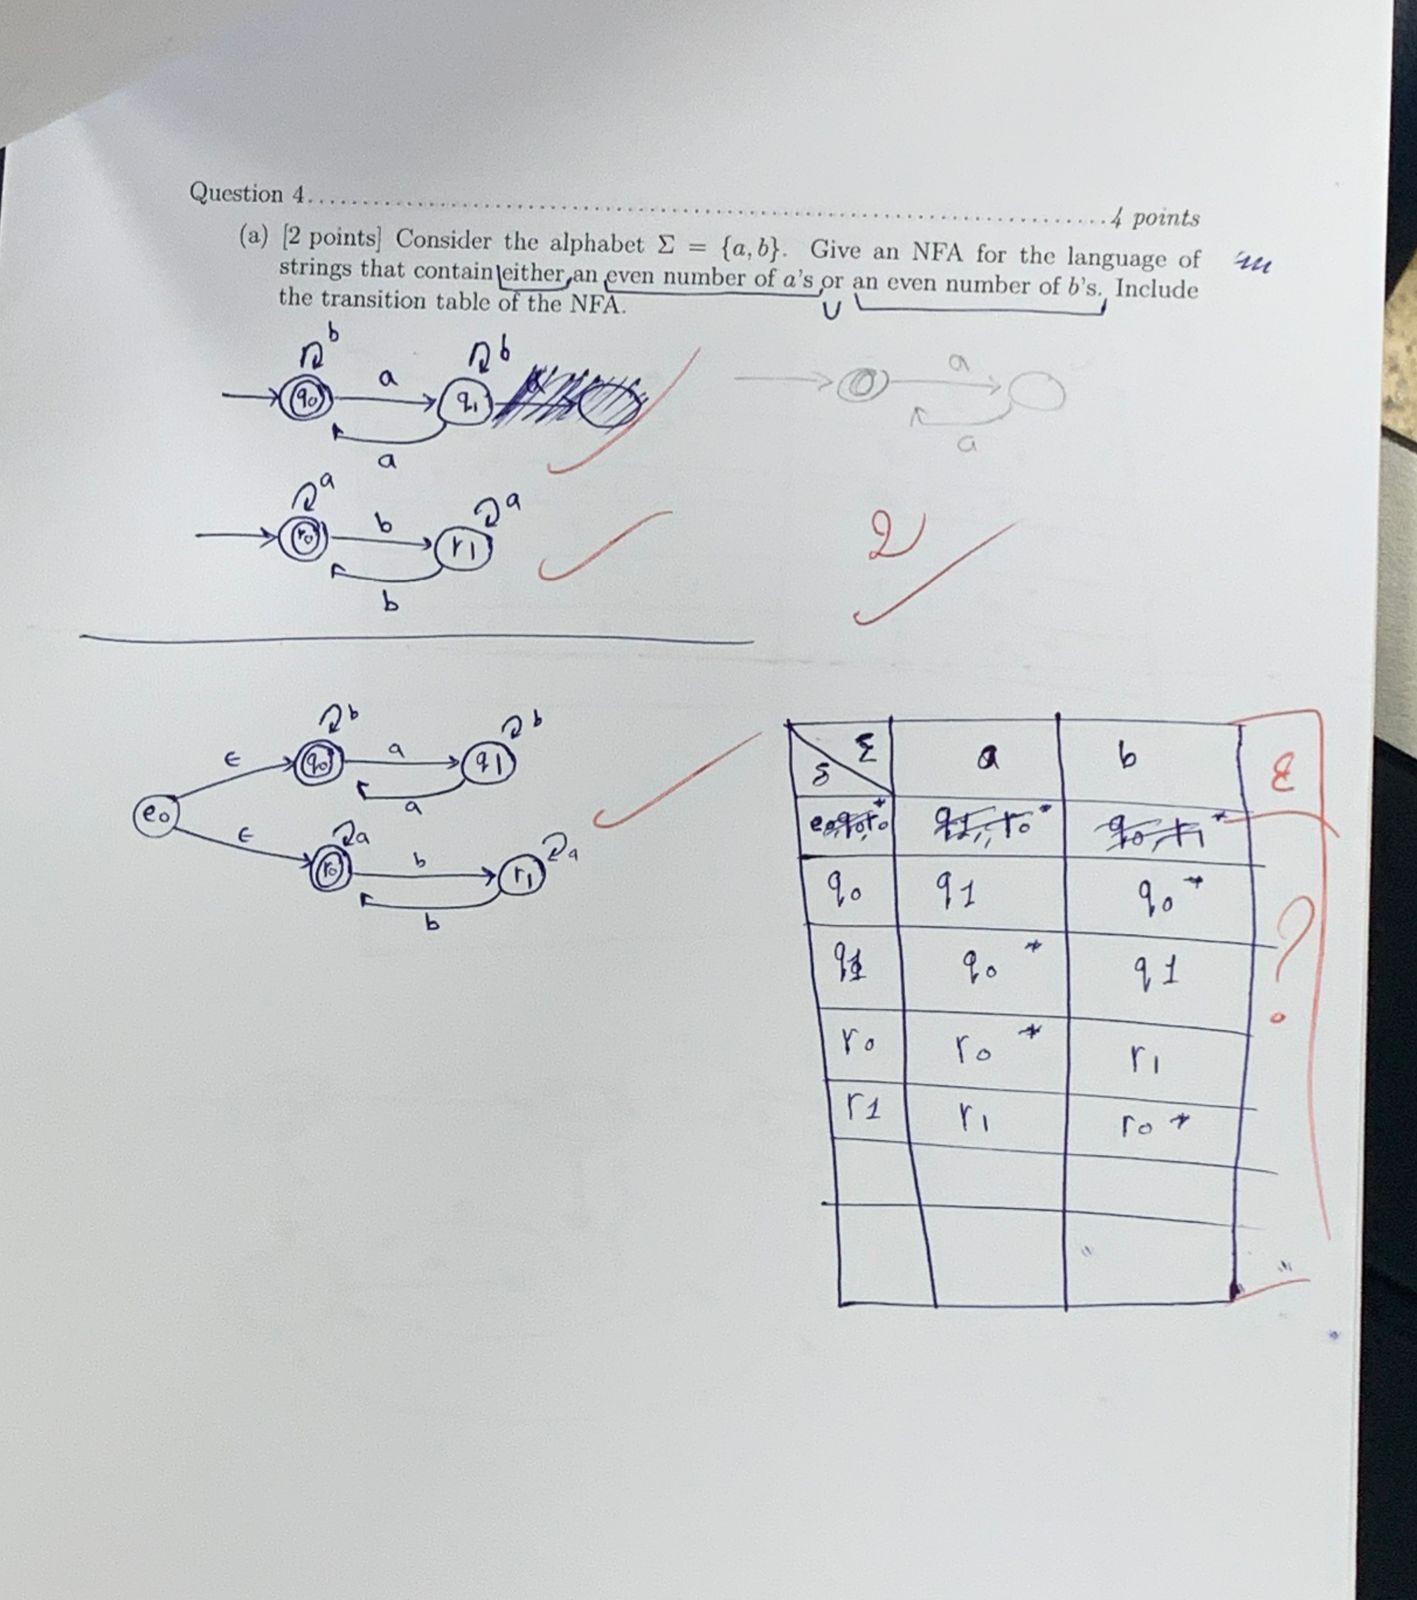 Question 4. . . . . . . . . . . . . . . . . . . . . . . . . . . . . . . . . . . . . . . . . . . . . . 4 points
(a) [2 points] Consider the alphabet Σ = {a, b}. Give an NFA for the language of
strings that contain either an even number of a's or an even number of b's. Include
the transition table of the NFA.
U
b b
q0 a q1
a
a
a
a a
r0 b r1
b
2
b b
ϵ q0 a q1
a
e0
ϵ a a
r0 b r1
b
δ Σ a b ε
e0,q0,r0* q1, r0* q0, r1*
q0 q1 q0*
q1 q0* q1
r0 r0* r1
r1 r1 r0*
?